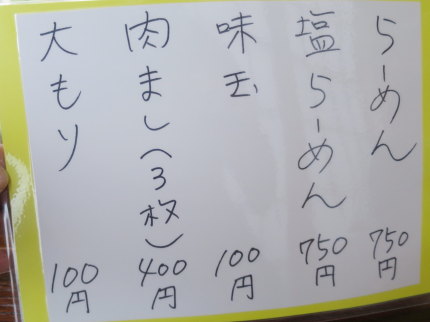 らーめん 750円
塩らーめん 750円
味玉 100円
肉まし(3枚) 400円
大もり 100円